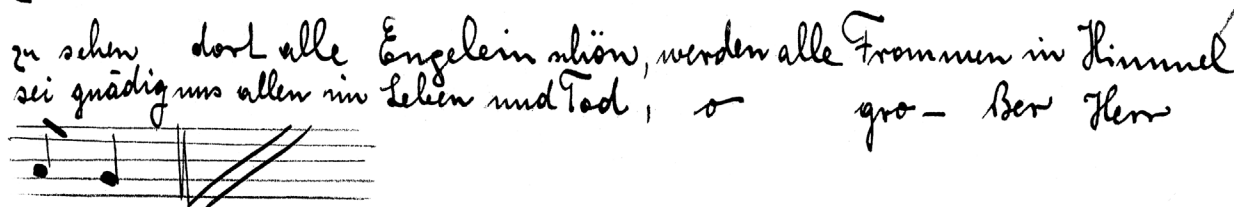 zu sehen dort alle Engelein schön, werden alle Frommen in Himmel
sei gnädig uns allen im Leben und Tod, o gro- ßer Herr